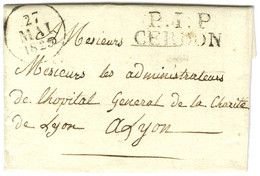 27
MAI
P.1.P
CERDON
Messieurs
Messieurs les administrateurs
de l'hopital General de la Charité
de Lyon a Lyon